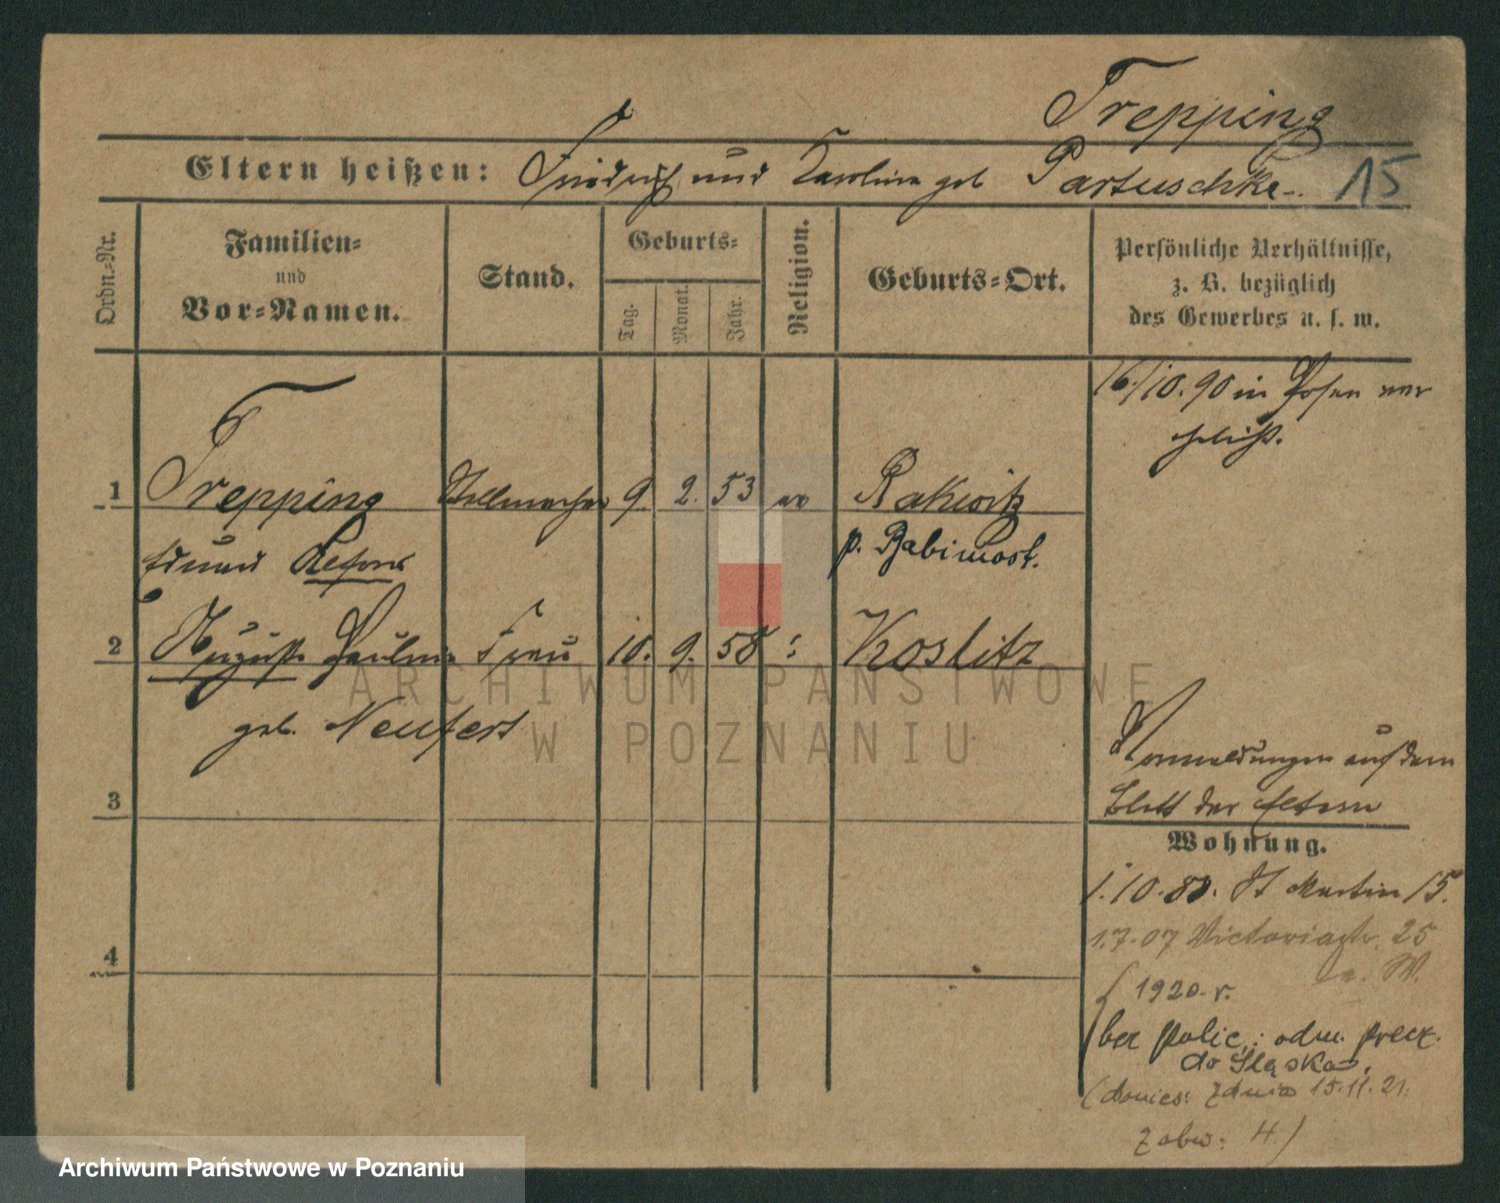 Trepping
Eltern heißen: Friedrich und Karoline geb Partuschke
15
Ordn.-Nr.
Familien-
und
Vor-Namen.
Stand.
Geburts-
Tag.
Monat.
Jahr.
Religion.
Geburts-Ort.
Persönliche Verhältnisse,
z. B. bezüglich
des Gewerbes u. s. w.
16/10.90 in Posen ver
ehelicht.
1 Trepping Stellmacher 9. 2. 53 ev Rakwitz
Eduard
p. Babimost.
2 Auguste Pauline Frau 10. 9. 58 Koslitz
geb. Neufert
Vormeldungen auf dem
Blatt der Eltern
3
Wohnung.
1.10.80. St Martin 15.
1.7.07 Victoriastr. 25
4
1920. r.
bez polic.: odm. przez.
do Śląska.
(donies: z dnia 15.11.21.
z obw: 4.)
ARCHIWUM PAŃSTWOWE
W POZNANIU
Archiwum Państwowe w Poznaniu